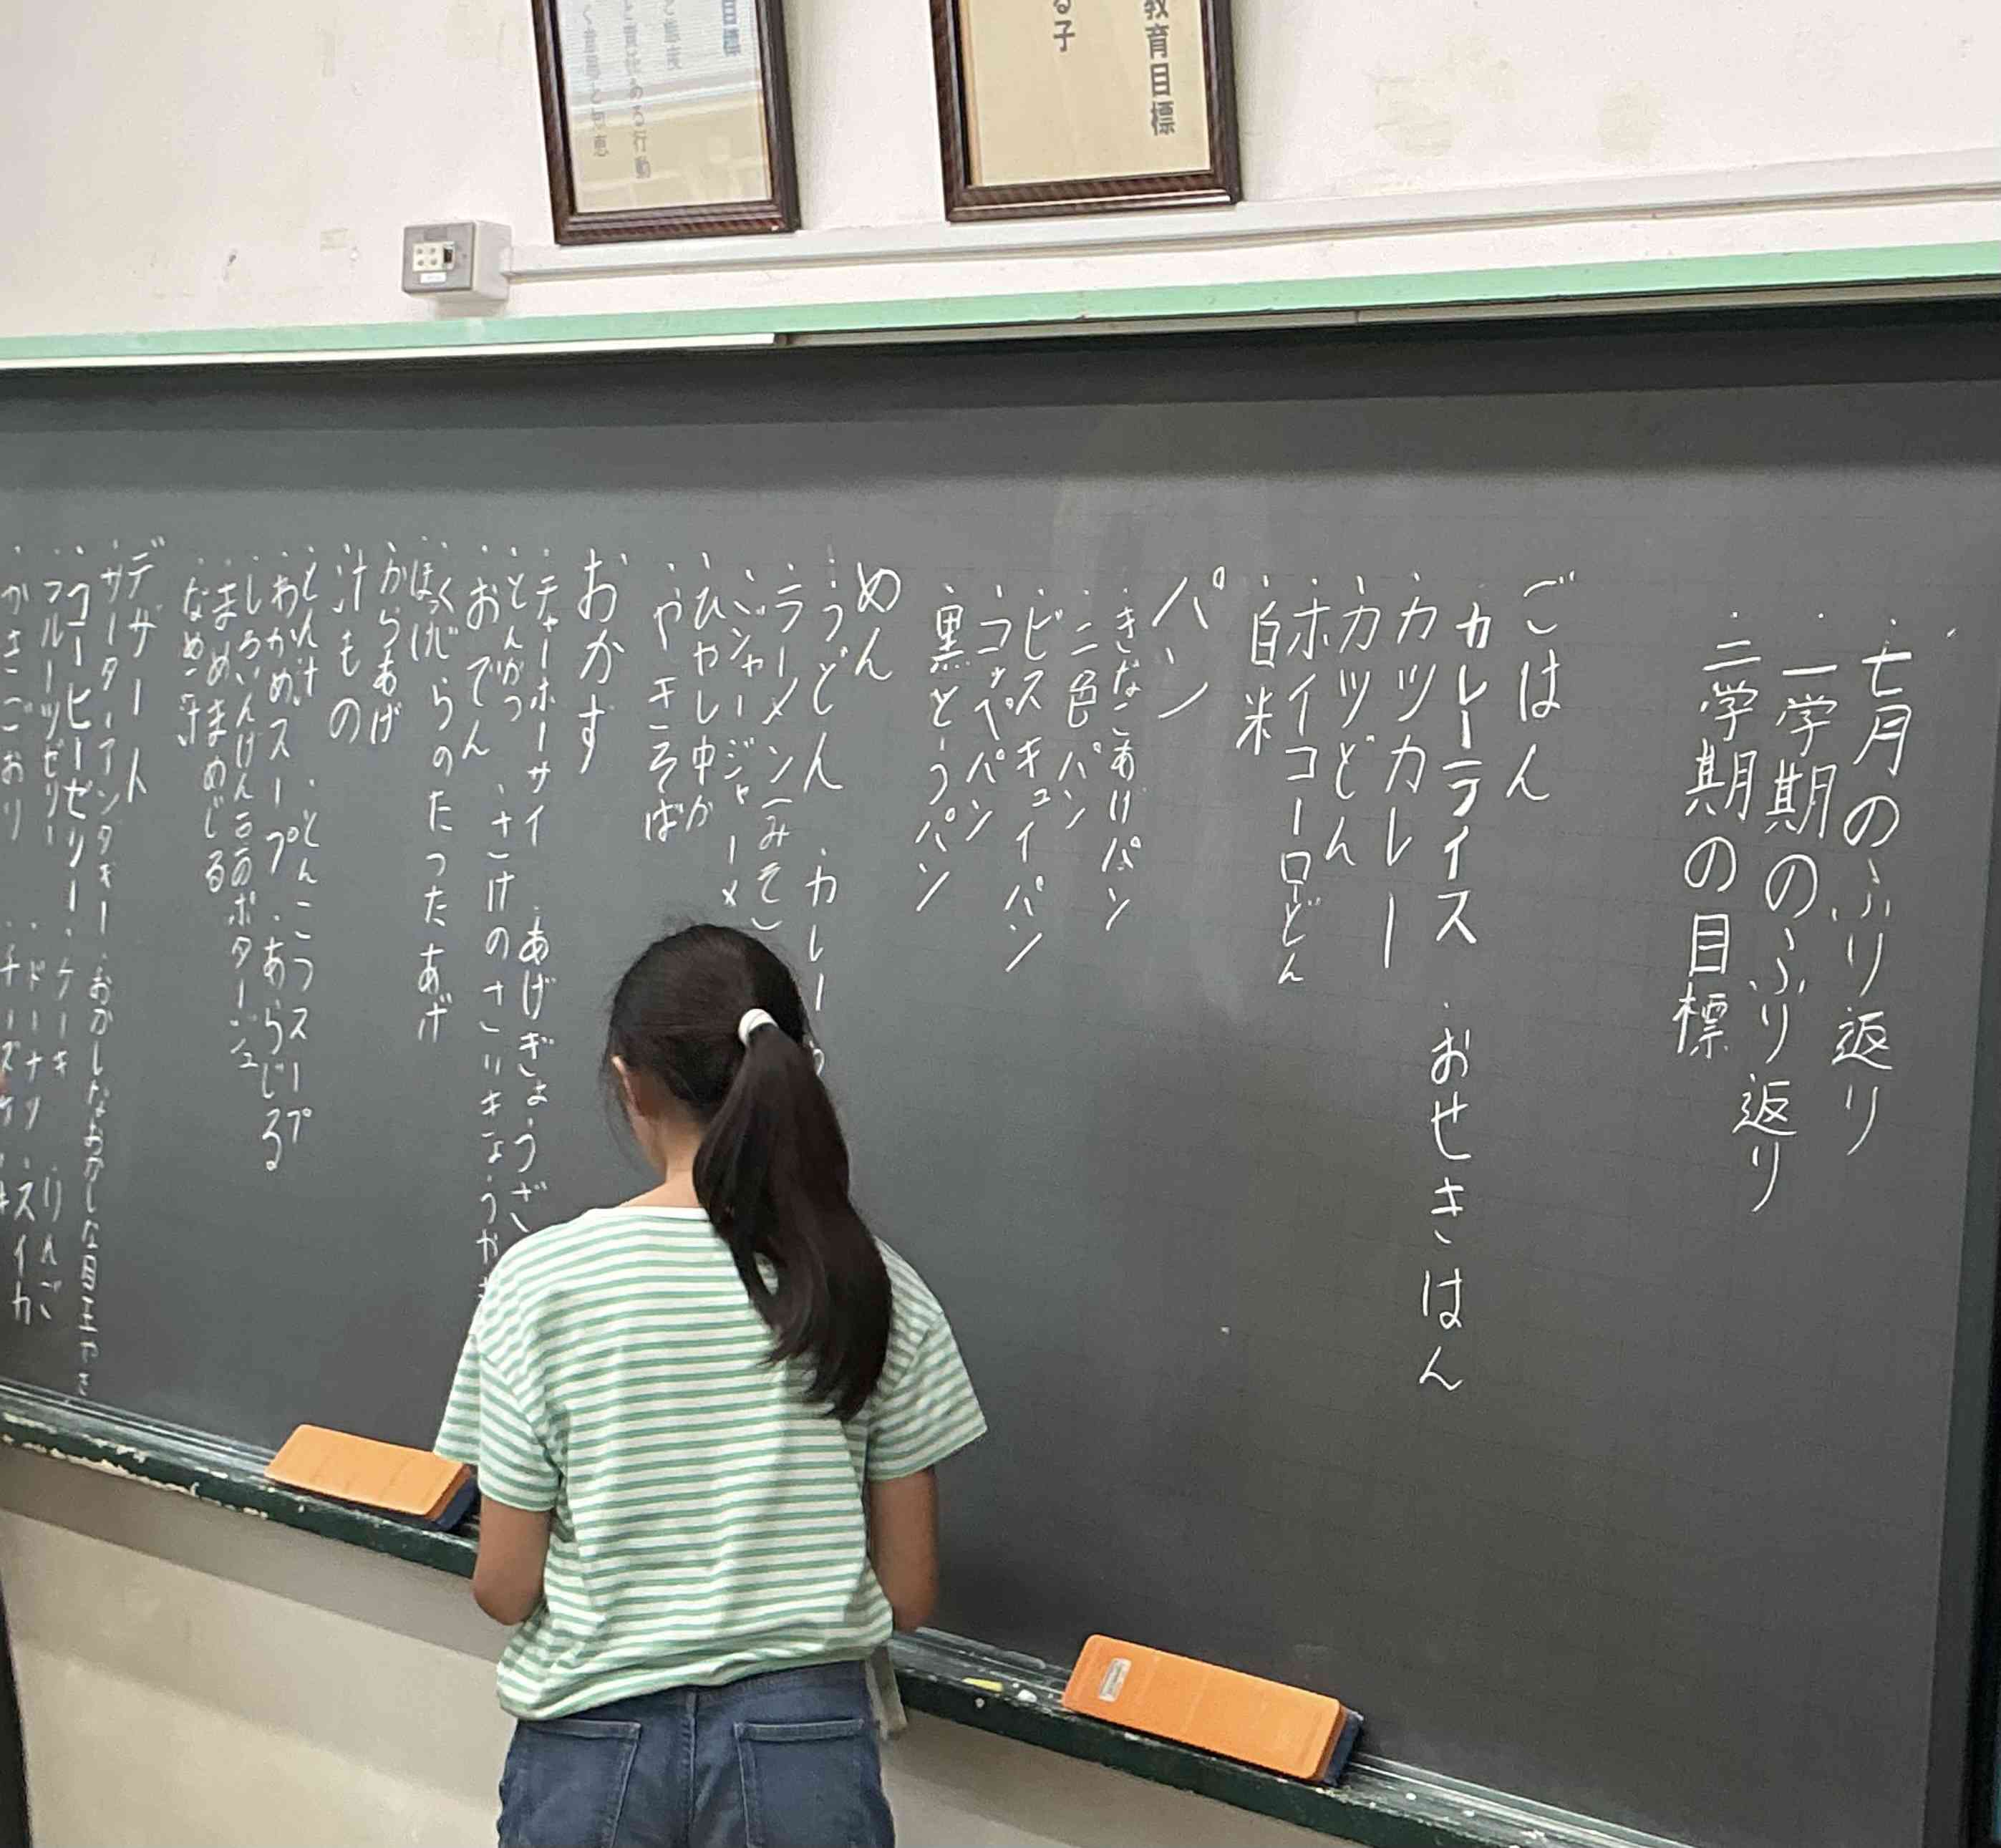 教育目標
る子
七月のふり返り
一学期のふり返り
二学期の目標
ごはん
・カレーライス ・おせきはん
・カツカレー
・カツどん
・ホイコーローどん
・白米
パン
・きなこあげパン
・二色パン
・ビスキュイパン
・コッペパン
・黒とうパン
めん
・うどん ・カレー
・ラーメン(みそ)
・ジャージャーメ
・ひやし中か
・やきそば
おかず
・チャーホーサイ ・あげぎょうざ
・とんかつ ・さけのさいきょうやき
・おでん
・くじらのたったあげ
・ほっけ
・からあげ
汁もの
・とん汁 ・とんこつスープ
・わかめスープ ・あらじる
・しろいんげん豆のポタージュ
・まめまめじる
・なめこ汁
デザート
・サーターアンダギー ・おかしなおかしな目玉やき
・コーヒーゼリー ・ケーキ ・りんご
・フルーツゼリー ・ドーナツ ・スイカ
・かきごおり